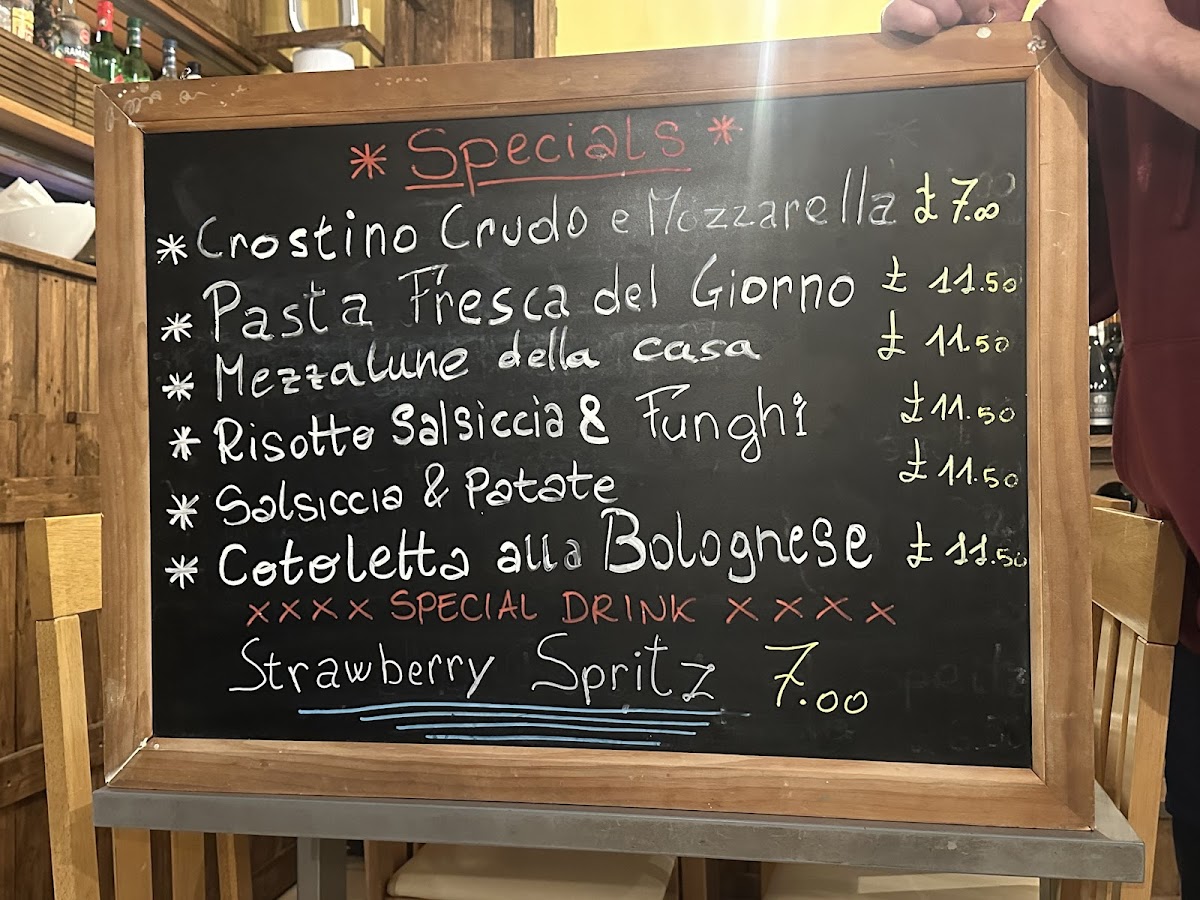 * Specials *
* Crostino Crudo e Mozzarella £ 7.00
* Pasta Fresca del Giorno £ 11.50
* Mezzalune della casa £ 11.50
* Risotto Salsiccia & Funghi £ 11.50
* Salsiccia & Patate £ 11.50
* Cotoletta alla Bolognese £ 11.50
x x x x SPECIAL DRINK x x x x
Strawberry Spritz 7.00